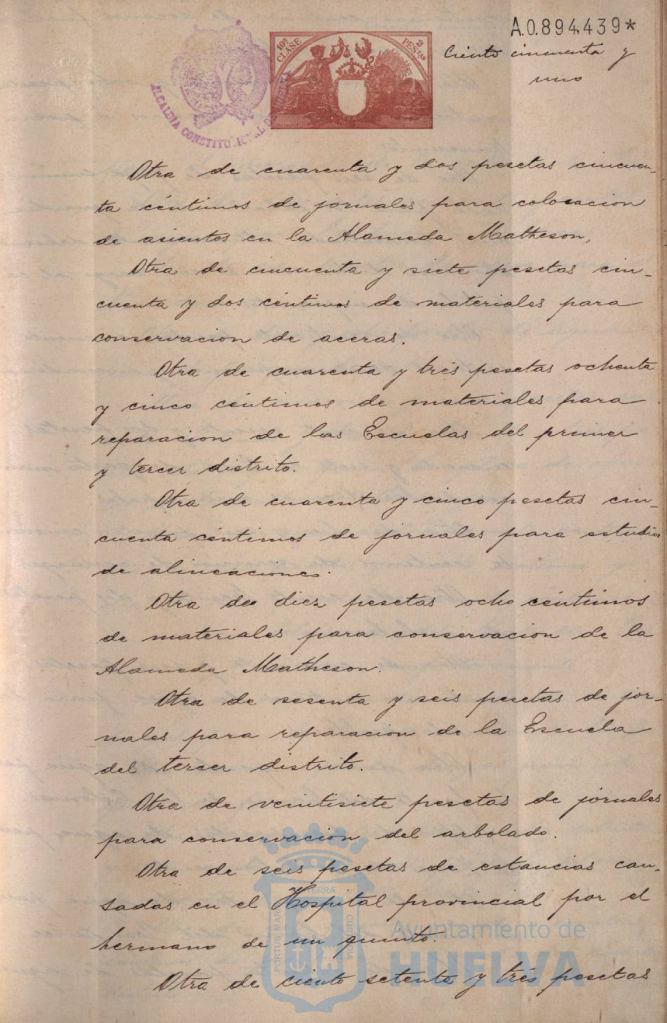 A.0.894.439*
10ª CLASE
2 PESETAS
ALCALDIA CONSTITUCIONAL DE
Ciento cincuenta y
uno
Otra de cuarenta y dos pesetas cincuen-
ta céntimos de jornales para colocacion
de asientos en la Alameda Matheson,
Otra de cincuenta y siete pesetas cin-
cuenta y dos céntimos de materiales para
conservacion de aceras.
Otra de cuarenta y tres pesetas ochenta
y cinco céntimos de materiales para
reparacion de las Escuelas del primer
y tercer distrito.
Otra de cuarenta y cinco pesetas cin-
cuenta céntimos de jornales para estudios
de alineaciones.
Otra de diez pesetas ocho céntimos
de materiales para conservacion de la
Alameda Matheson.
Otra de sesenta y seis pesetas de jor-
nales para reparacion de la Escuela
del tercer distrito.
Otra de veintisiete pesetas de jornales
para conservacion del arbolado.
Otra de seis pesetas de estancias cau-
sadas en el Hospital provincial por el
hermano de un quinto.
Otra de ciento setenta y tres pesetas
Ayuntamiento de
HUELVA